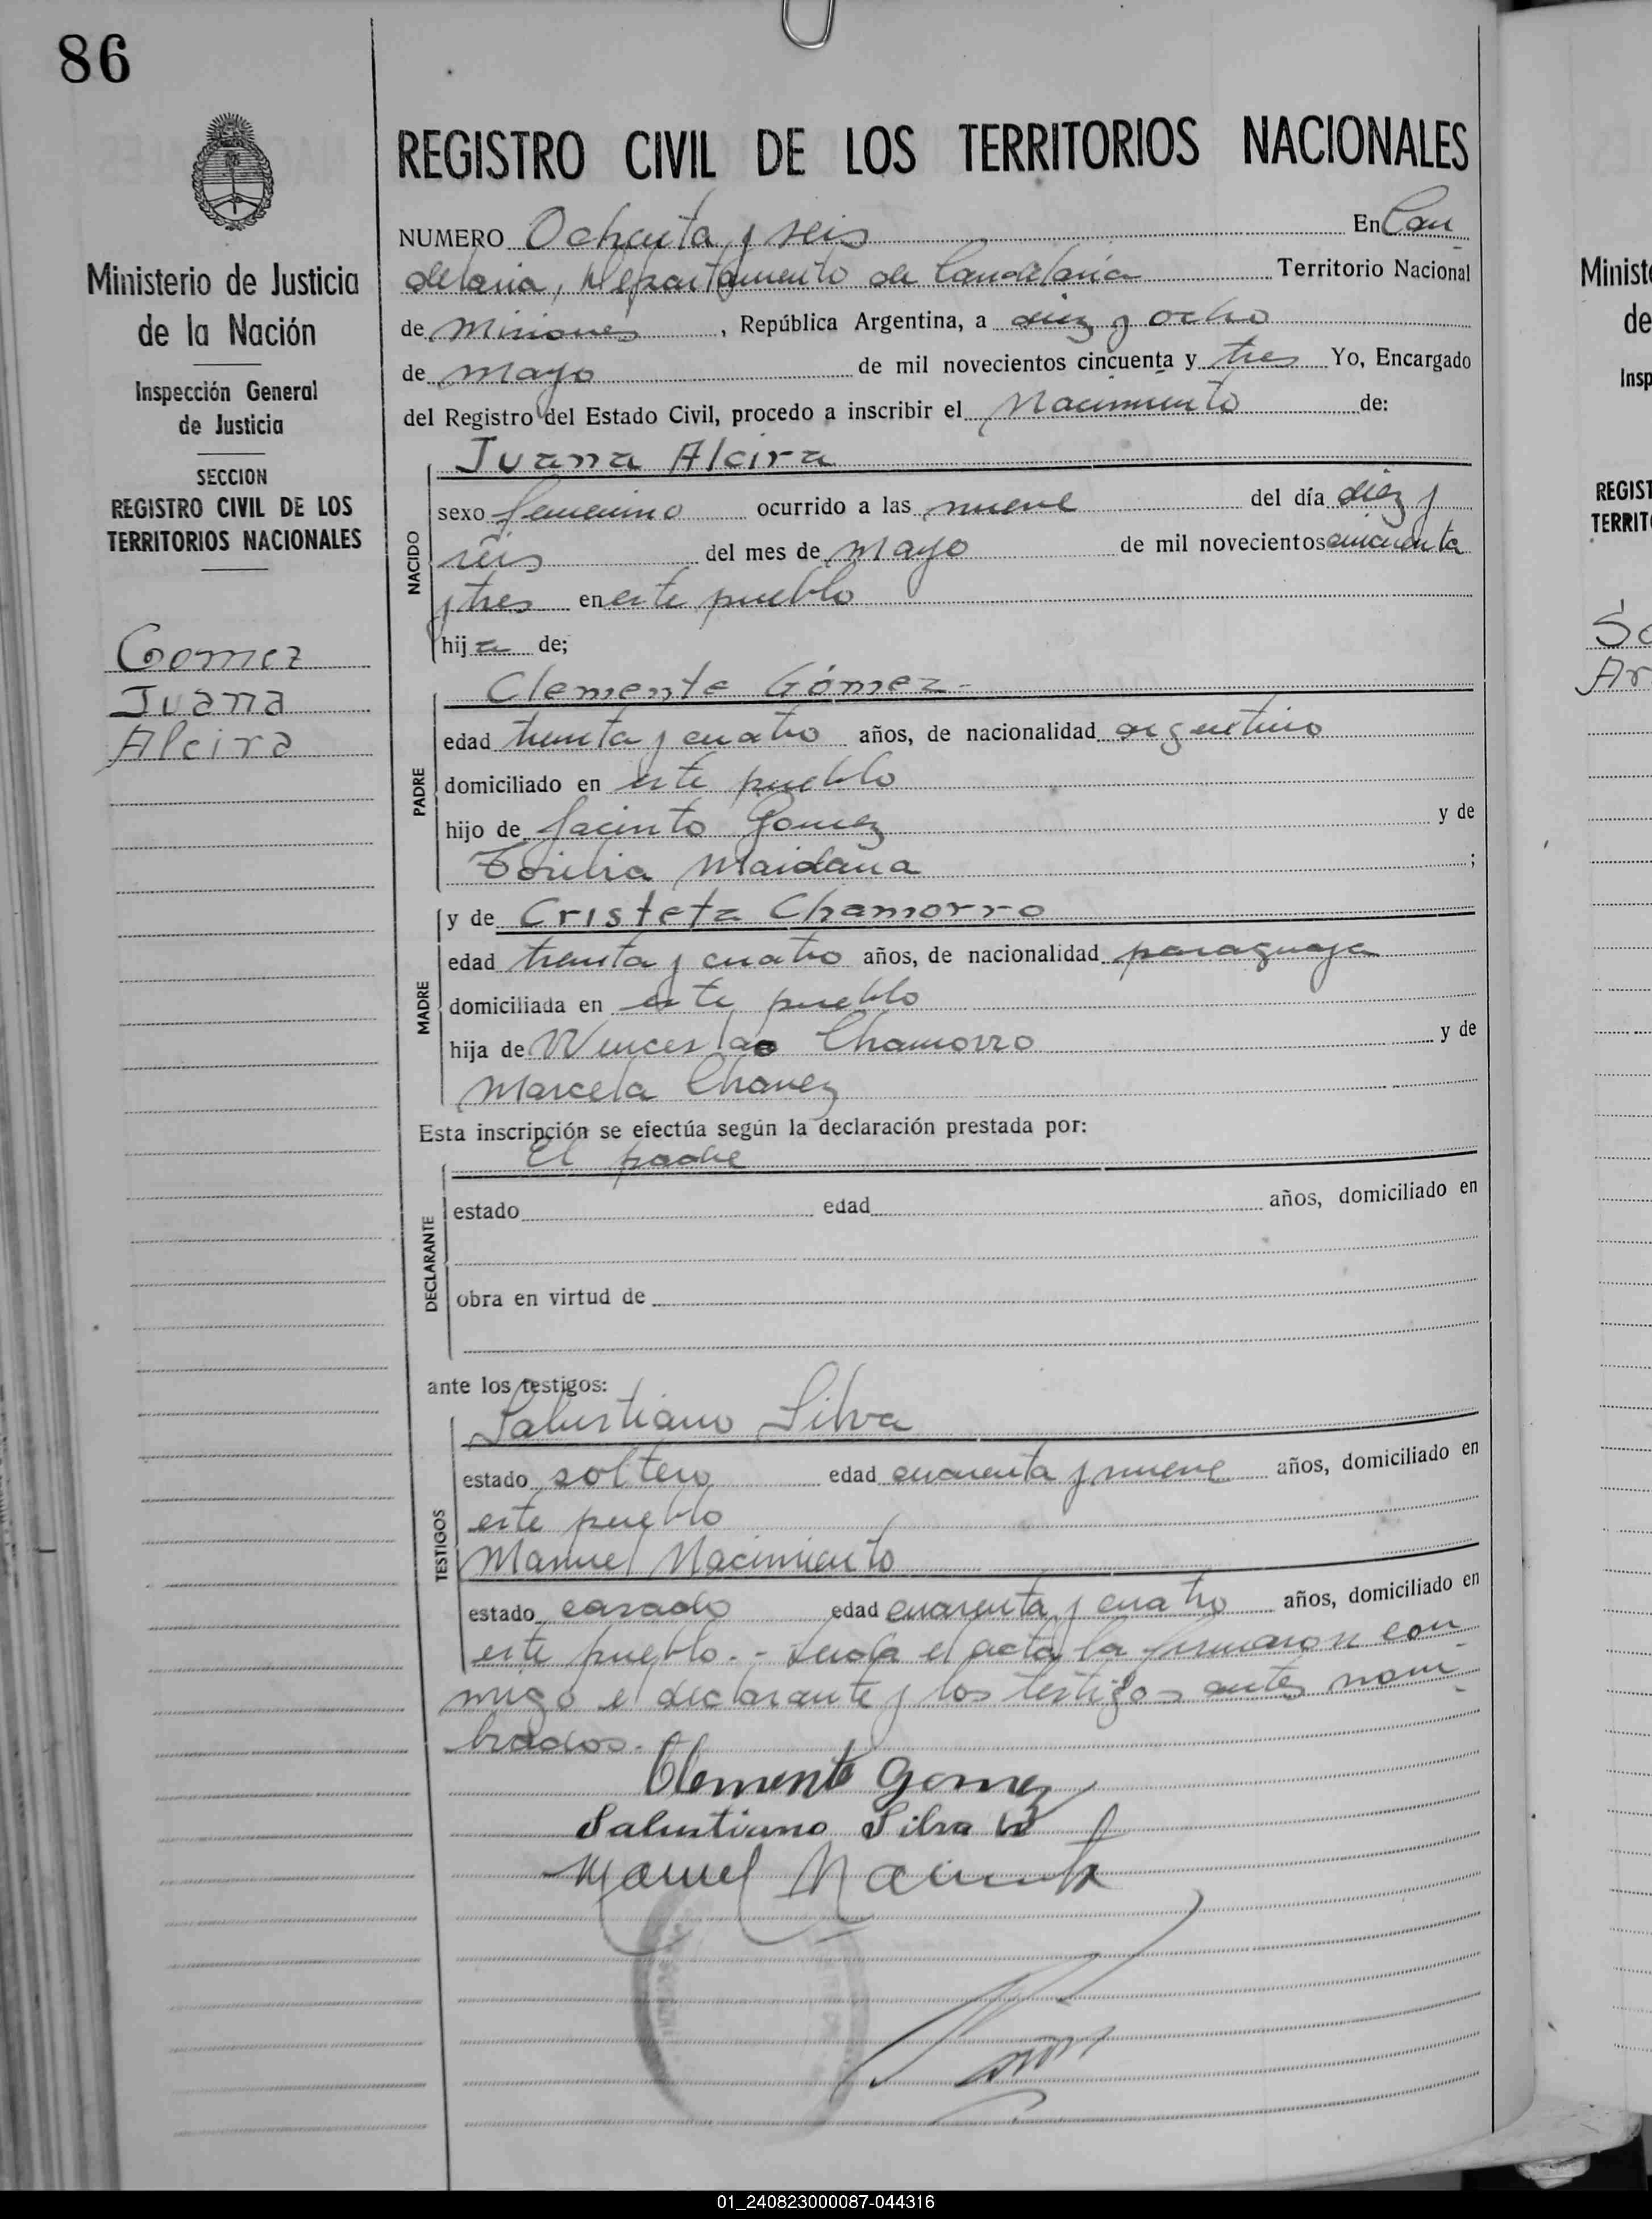 86
REGISTRO CIVIL DE LOS TERRITORIOS NACIONALES
Ministerio de Justicia
de la Nación
Inspección General
de Justicia
SECCION
REGISTRO CIVIL DE LOS
TERRITORIOS NACIONALES
Gomez
Juana
Alcira
NUMERO Ochenta y seis En Can
delaria, Departamento de Candelaria Territorio Nacional
de Misiones, República Argentina, a diez y ocho
de mayo de mil novecientos cincuenta y tres Yo, Encargado
del Registro del Estado Civil, procedo a inscribir el Nacimiento de:
NACIDO
Juana Alcira
sexo femenino ocurrido a las nueve del día diez y
seis del mes de mayo de mil novecientos cincuenta
y tres en este pueblo
hija de;
PADRE
Clemente Gómez-
edad treinta y cuatro años, de nacionalidad argentino
domiciliado en este pueblo
hijo de Jacinto Gomez y de
Maidana ;
MADRE
y de Cristeta Chamorro
edad treinta y cuatro años, de nacionalidad paraguaya
domiciliada en este pueblo
hija de Wenceslao Chamorro y de
Marcela Chavez
Esta inscripción se efectúa según la declaración prestada por:
DECLARANTE
El padre
estado edad años, domiciliado en
obra en virtud de
ante los testigos:
TESTIGOS
Salustiano Silva
estado soltero edad cuarenta y nueve años, domiciliado en
este pueblo
Manuel Nacimiento
estado casado edad cuarenta y cuatro años, domiciliado en
este pueblo.- Leida el acta la firmaron con
migo el declarante y los testigos antes nom
brados.-
Clemente Gomez
Salustiano Silva
Manuel
Minist
de
Insp
REGIST
TERRIT
So
Ar
01_240823000087-044316